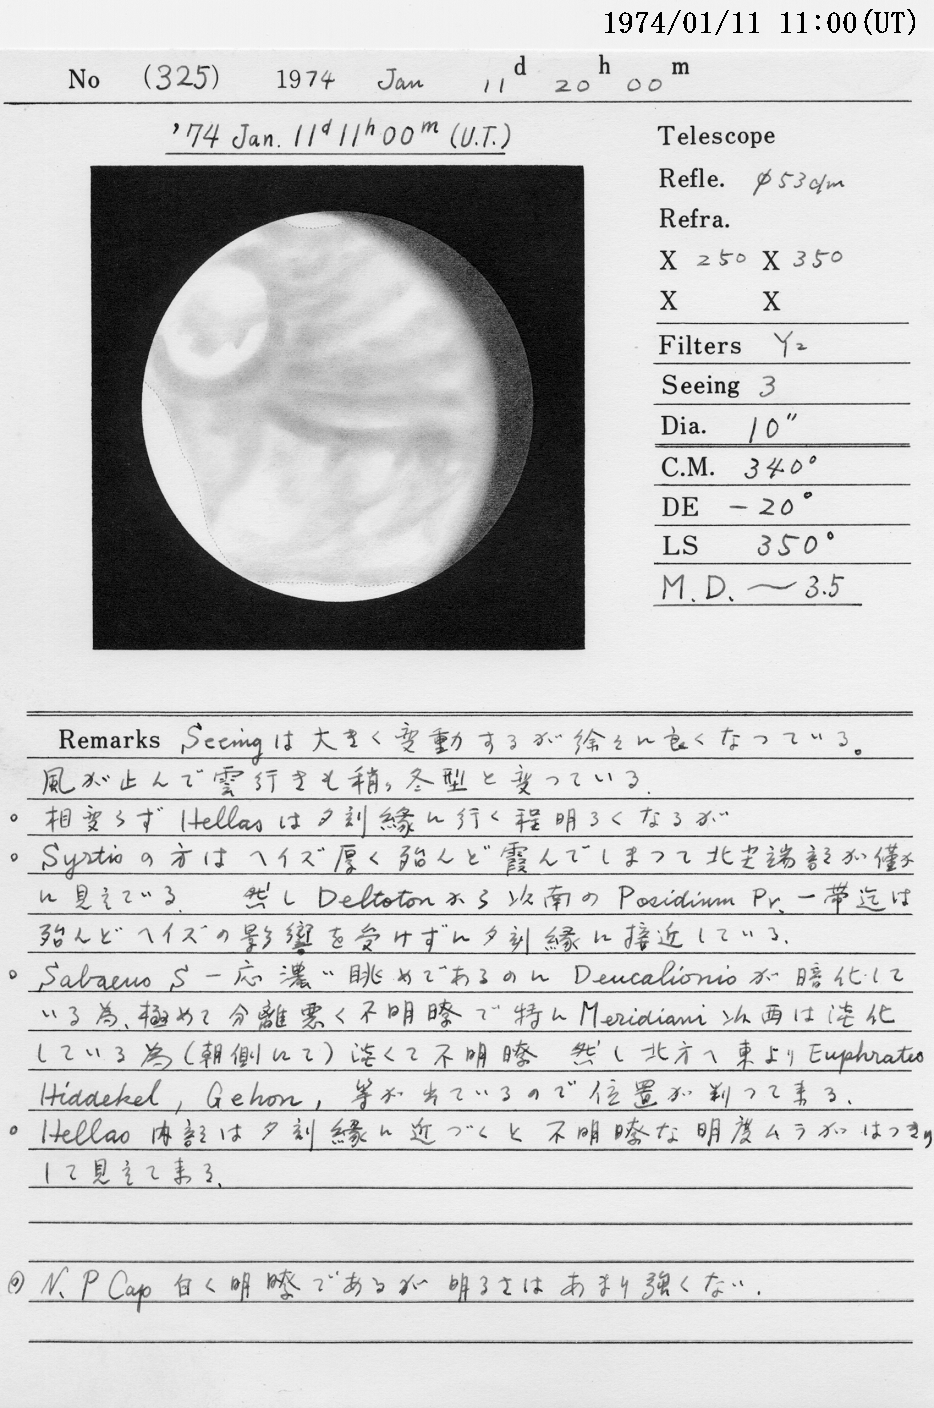 1974/01/11 11:00(UT)
No (325) 1974 Jan 11d 20h 00m
'74 Jan. 11d 11h 00m (U.T.)
Telescope
Refle. φ53cm
Refra.
X 250 X 350
X X
Filters Y2
Seeing 3
Dia. 10"
C.M. 340°
DE -20°
LS 350°
M.D. ～3.5
Remarks Seeingは大きく変動するが徐々に良くなっている。
風が止んで雲行きも稍々冬型と変っている.
○ 相変らず Hellasは夕刻縁に行く程明るくなるが
○ Syrtisの方はヘイズ厚く殆んど霞んでしまって北尖端部が僅か
に見えている. 然し Deltotonから以南の Posidium Pr. 一帯迄は
殆んどヘイズの影響を受けずに夕刻縁に接近している.
○ Sabaeus S 一応濃い眺めであるのに Deucalionisが暗化して
いる為、極めて分離悪く不明瞭で特に Meridiani 以西は淡化
している為(朝側にて)淡くて不明瞭 然し北方へ東より Euphrates
Hiddekel, Gehon, 等が出ているので位置が判って来る.
○ Hellas 内部は夕刻縁に近づくと不明瞭な明度ムラがはっきり
して見えて来る.
◎ N. P Cap 白く明瞭であるが明るさはあまり強くない.